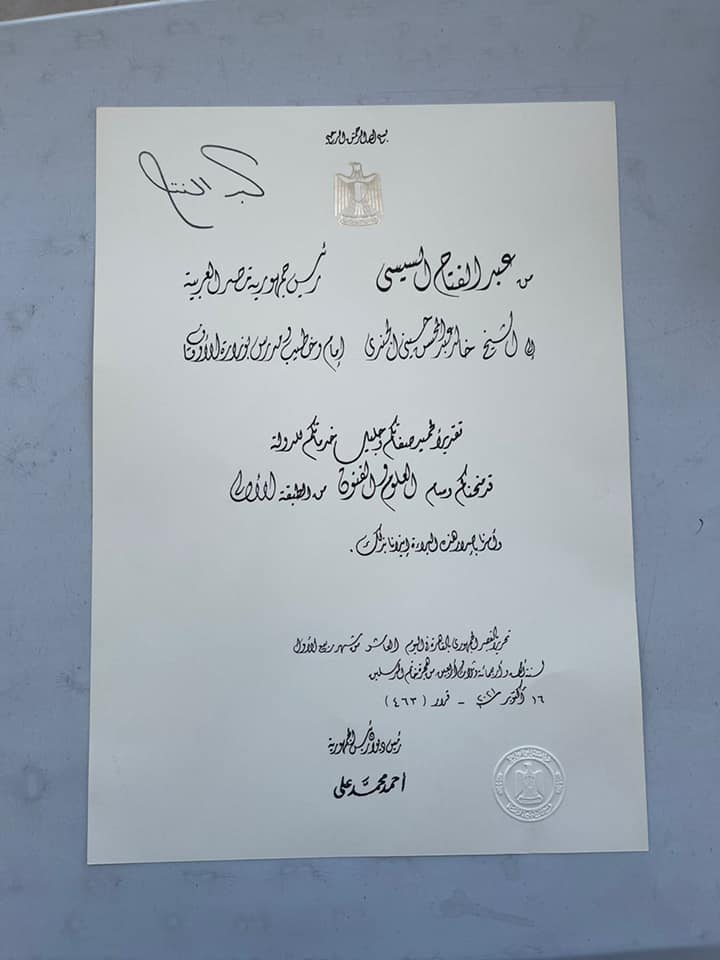 بسم الله الرحمن الرحيم
من عبد الفتاح السيسى رئيس جمهورية مصر العربية
إلى الشيخ خالد عبد المحسن حسينى الجندى إمام وخطيب ومدرس بوزارة الأوقاف
تقديراً لحميد صفاتكم وجليل خدماتكم للدولة
قد منحناكم وسام العلوم والفنون من الطبقة الأولى
وأمرنا بإصدار هذه البراءة إيذانا بذلك .
تحريراً بالقصر الجمهورى بالقاهرة فى اليوم العاشر من شهر ربيع الأول
لسنة ألف وأربعمائة وثلاث وأربعين من هجرة خاتم المرسلين
١٦ أكتوبر سنة ٢٠٢١ - قرار ( ٤٦٣ )
رئيس ديوان رئيس الجمهورية
أحمد محمد على